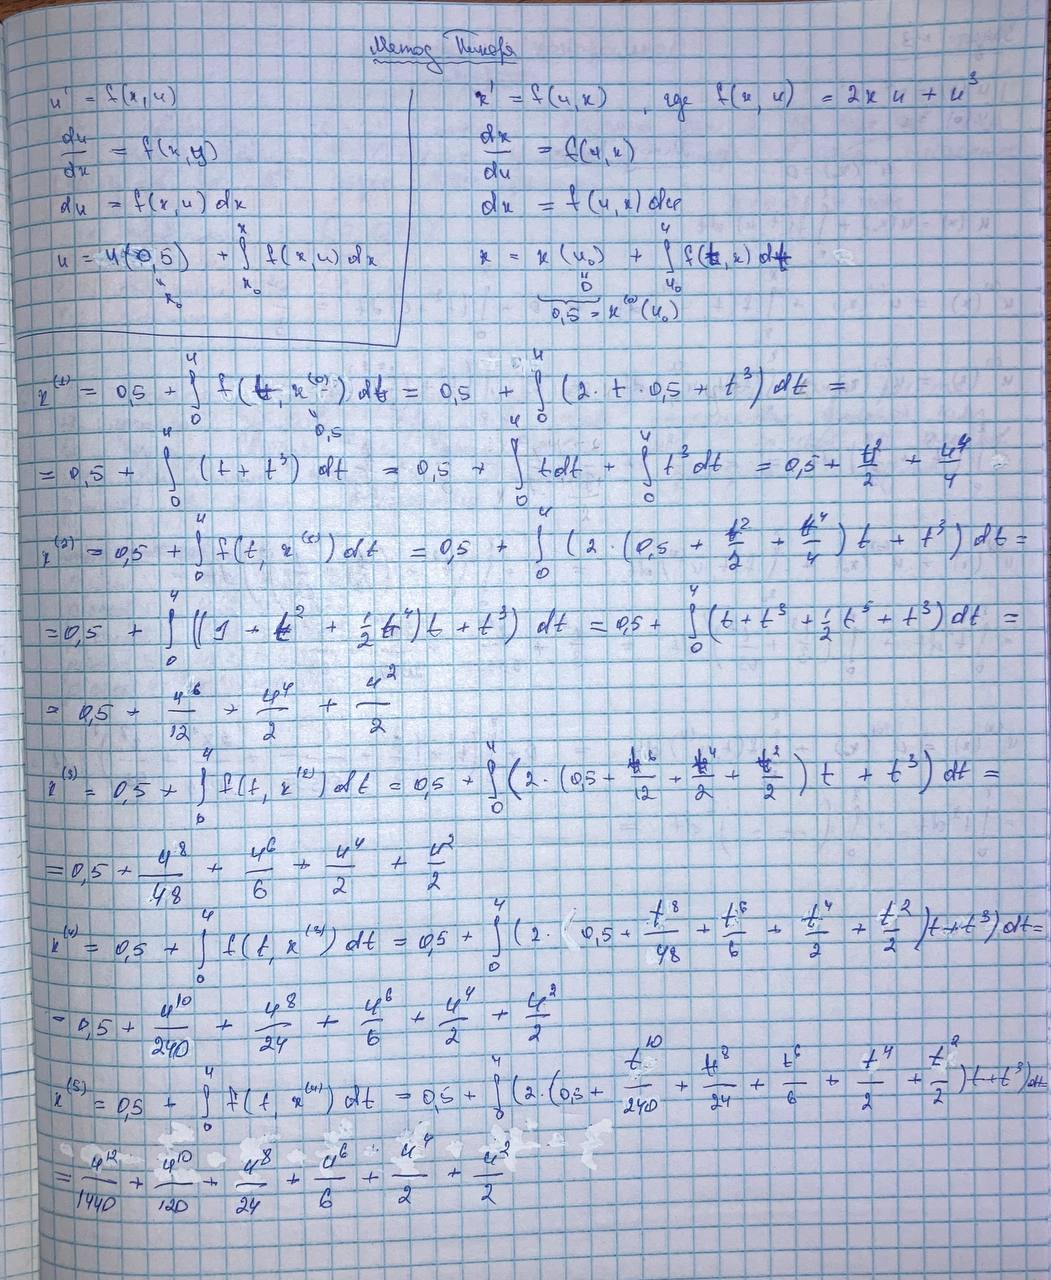 Метод Пикара
u' = f(x, u)
du/dx = f(x, y)
du = f(x, u) dx
u = u(0,5) + ∫_{x₀}^{x} f(x, u) dx
" x₀
x' = f(u, x) , где f(x, u) = 2xu + u³
dx/du = f(u, x)
dx = f(u, x) du
x = x(u₀) + ∫_{u₀}^{u} f(t, x) dt
" 0
0,5 = x⁽⁰⁾(u₀)
x⁽¹⁾ = 0,5 + ∫₀ᵘ f(t, x⁽⁰⁾) dt = 0,5 + ∫₀ᵘ (2 · t · 0,5 + t³) dt =
" 0,5
= 0,5 + ∫₀ᵘ (t + t³) dt = 0,5 + ∫₀ᵘ t dt + ∫₀ᵘ t³ dt = 0,5 + u²/2 + u⁴/4
x⁽²⁾ = 0,5 + ∫₀ᵘ f(t, x⁽¹⁾) dt = 0,5 + ∫₀ᵘ (2 · (0,5 + t²/2 + t⁴/4) t + t³) dt =
= 0,5 + ∫₀ᵘ ((1 + t² + 1/2 t⁴) t + t³) dt = 0,5 + ∫₀ᵘ (t + t³ + 1/2 t⁵ + t³) dt =
= 0,5 + u⁶/12 + u⁴/2 + u²/2
x⁽³⁾ = 0,5 + ∫₀ᵘ f(t, x⁽²⁾) dt = 0,5 + ∫₀ᵘ (2 · (0,5 + t⁶/12 + t⁴/2 + t²/2) t + t³) dt =
= 0,5 + u⁸/48 + u⁶/6 + u⁴/2 + u²/2
x⁽⁴⁾ = 0,5 + ∫₀ᵘ f(t, x⁽³⁾) dt = 0,5 + ∫₀ᵘ (2 · (0,5 + t⁸/48 + t⁶/6 + t⁴/2 + t²/2) t + t³) dt =
= 0,5 + u¹⁰/240 + u⁸/24 + u⁶/6 + u⁴/2 + u²/2
x⁽⁵⁾ = 0,5 + ∫₀ᵘ f(t, x⁽⁴⁾) dt = 0,5 + ∫₀ᵘ (2 · (0,5 + t¹⁰/240 + t⁸/24 + t⁶/6 + t⁴/2 + t²/2) t + t³) dt
= u¹²/1440 + u¹⁰/120 + u⁸/24 + u⁶/6 + u⁴/2 + u²/2